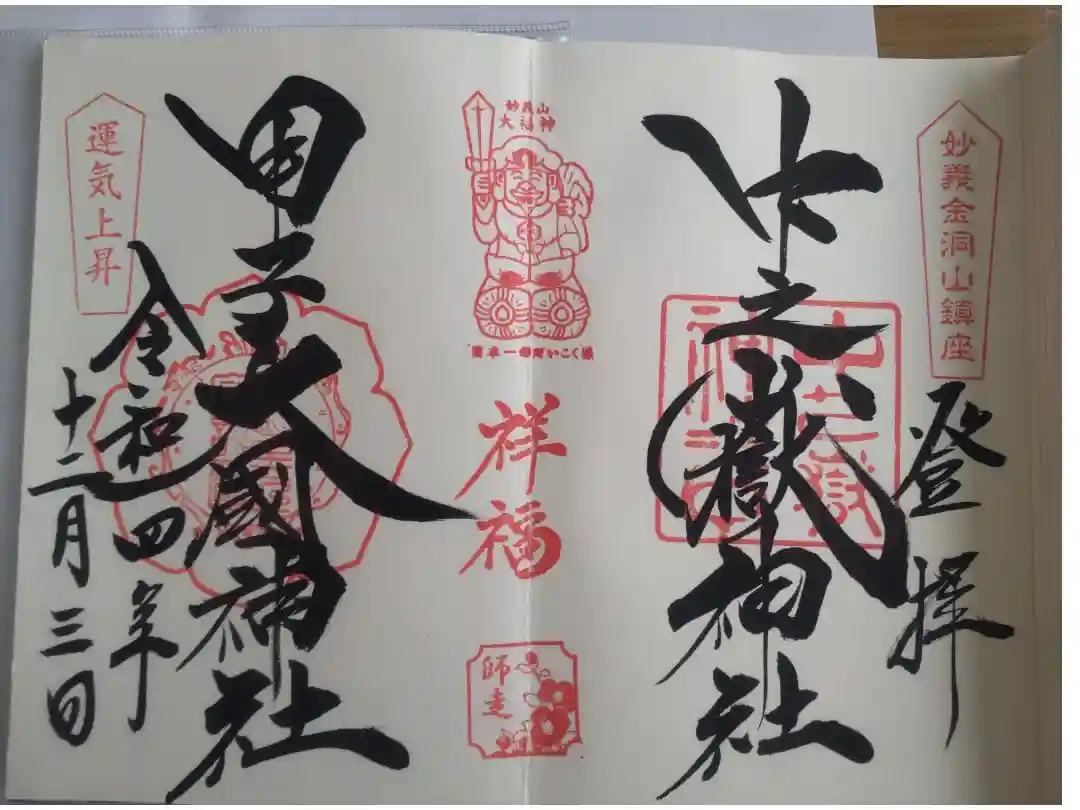 妙義金洞山鎮座
登拝
中之嶽神社
妙義山
大福神
日本一のだいこく様
祥福
師走
運気上昇
甲子大國神社
令和四年
十二月三日